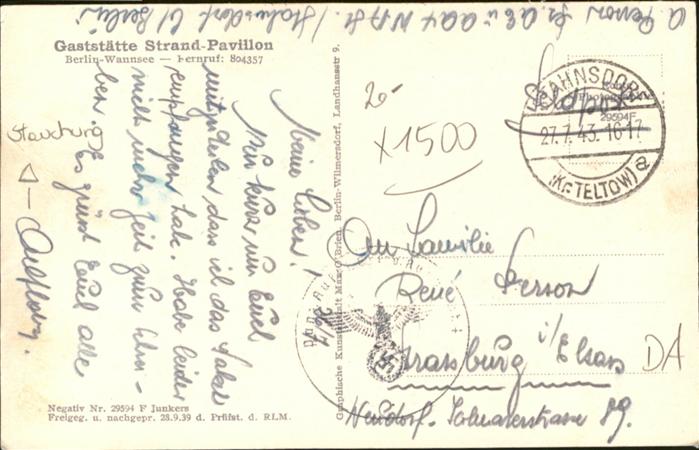 Gaststätte Strand-Pavillon
Berlin-Wannsee — Fernruf: 804357
Meine Lieben!
Nur kurz um Euch
mitzuteilen das ich das Paket
empfangen habe. Habe leider
nicht mehr Zeit zum schrei-
ben. Es grüsst Euch alle
Stauchung
Negativ Nr. 29594 F Junkers
Freigeg. u. nachgepr. 28.9.39 d. Prüfst. d. RLM.
Graphische Kunstanstalt Max O'Brien, Berlin-Wilmersdorf, Landhausstr 9.
20-
x1500
Feldpost
29594F
STAHNSDORF
27.7.43.16-17
(Kr. TELTOW) a
An Familie
René Person
Strassburg i/Elsass
Neudorf-
89.
DA